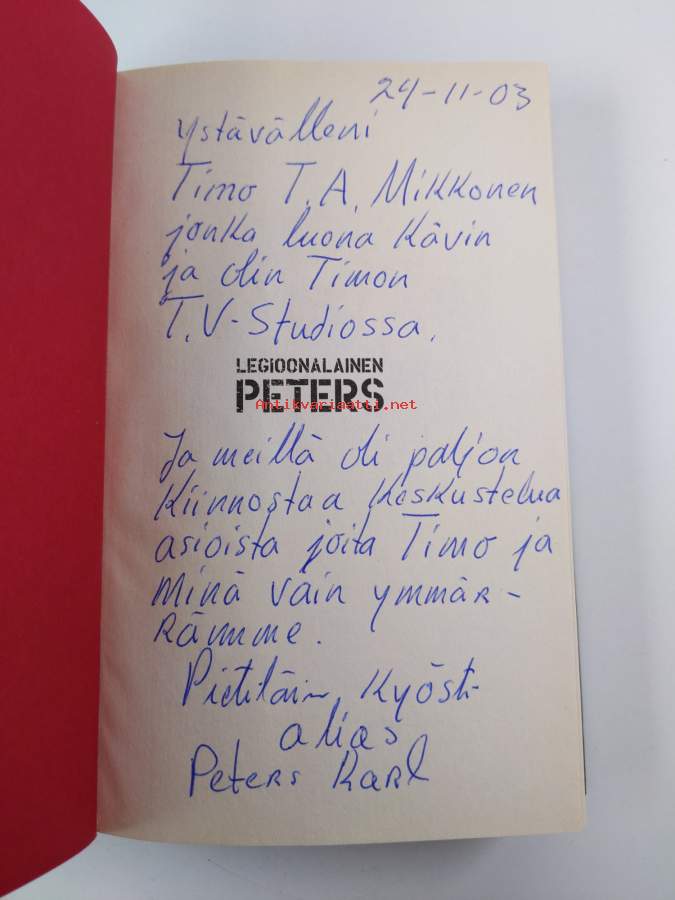 24-11-03
Ystävälleni
Timo T.A. Mikkonen
jonka luona Kävin
ja olin Timon
T.V-Studiossa.
LEGIOONALAINEN
PETERS
Antikvariaatti.net
Ja meillä oli paljon
Kiinnostaa Keskustelua
asioista joita Timo ja
Minä vain ymmär-
rämme.
Pietiläinen Kyösti
alias
Peters Karl